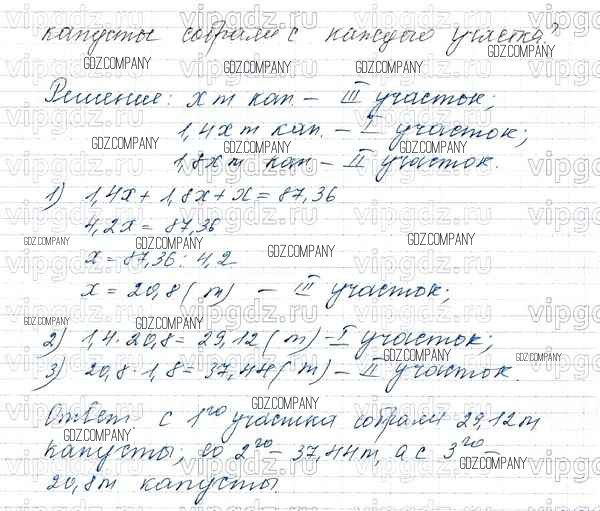 капусты собрали с каждого участка?
Решение: x т кап. – III участок;
1,4x т кап. – I участок;
1,8x т кап – II участок.
1) 1,4x + 1,8x + x = 87,36
4,2x = 87,36
x = 87,36 : 4,2
x = 20,8 (т) – III участок;
2) 1,4 · 20,8 = 29,12 (т) – I участок;
3) 20,8 · 1,8 = 37,44 (т) – II участок.
Ответ с 1го участка собрали 29,12т
капусты, со 2го – 37,44т, а с 3го –
20,8т капусты.
GDZ.COMPANY
vipgdz.ru